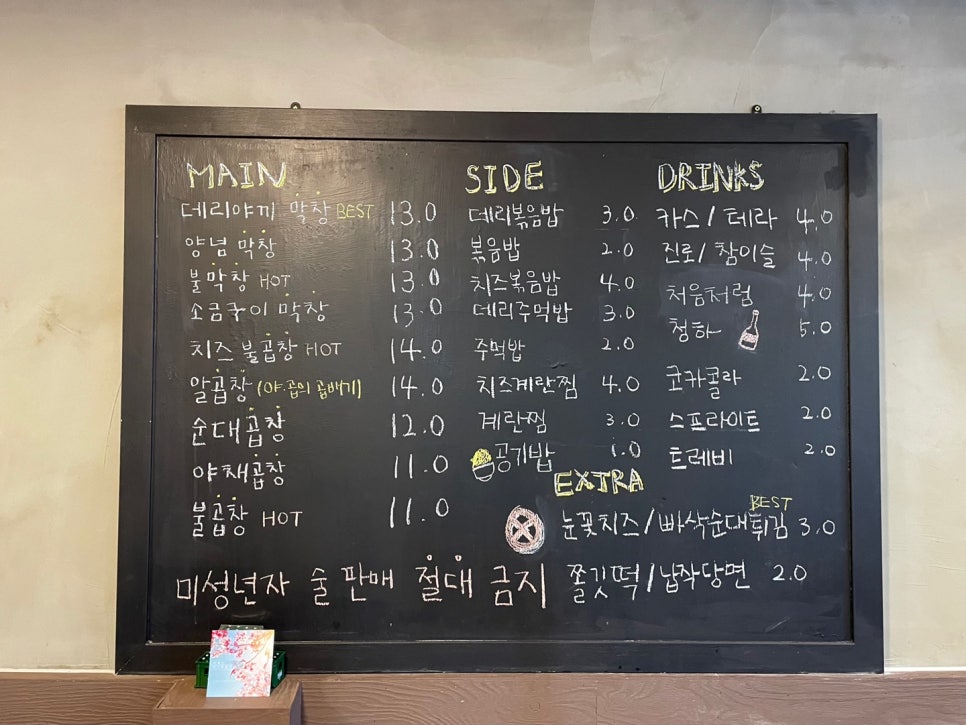 MAIN
데리야끼 막창 BEST 13.0
양념 막창 13.0
불막창 HOT 13.0
소금구이 막창 13.0
치즈 불곱창 HOT 14.0
알곱창 (야곱의 곱배기) 14.0
순대곱창 12.0
야채곱창 11.0
불곱창 HOT 11.0
SIDE
데리볶음밥 3.0
볶음밥 2.0
치즈볶음밥 4.0
데리주먹밥 3.0
주먹밥 2.0
치즈계란찜 4.0
계란찜 3.0
공기밥 1.0
DRINKS
카스/테라 4.0
진로/참이슬 4.0
처음처럼 4.0
청하 5.0
코카콜라 2.0
스프라이트 2.0
트레비 2.0
EXTRA
BEST
눈꽃치즈/빠삭순대튀김 3.0
쫄깃떡/납작당면 2.0
미성년자 술 판매 절대 금지